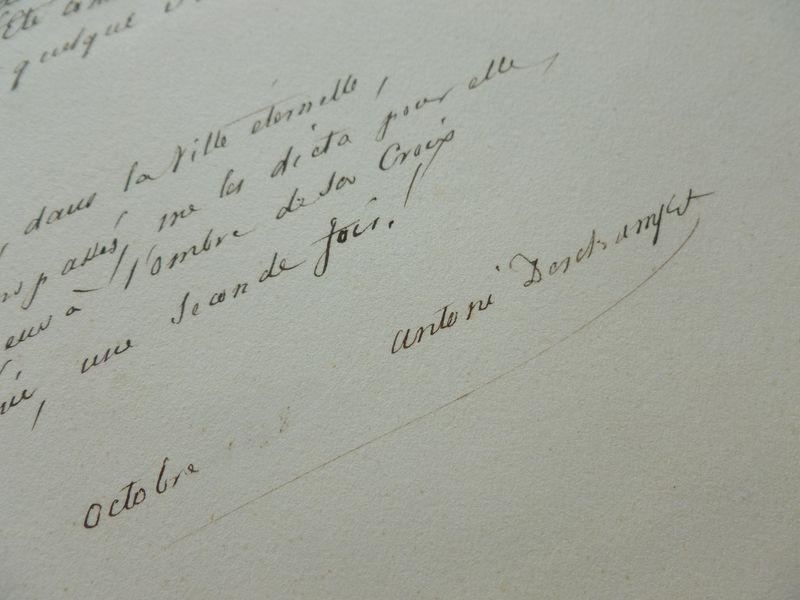 quelque
dans la Ville éternelle,
passés, me les dicta pour elle,
à l'ombre de sa Croix
une seconde fois.!
antoni Deschamps
octobre